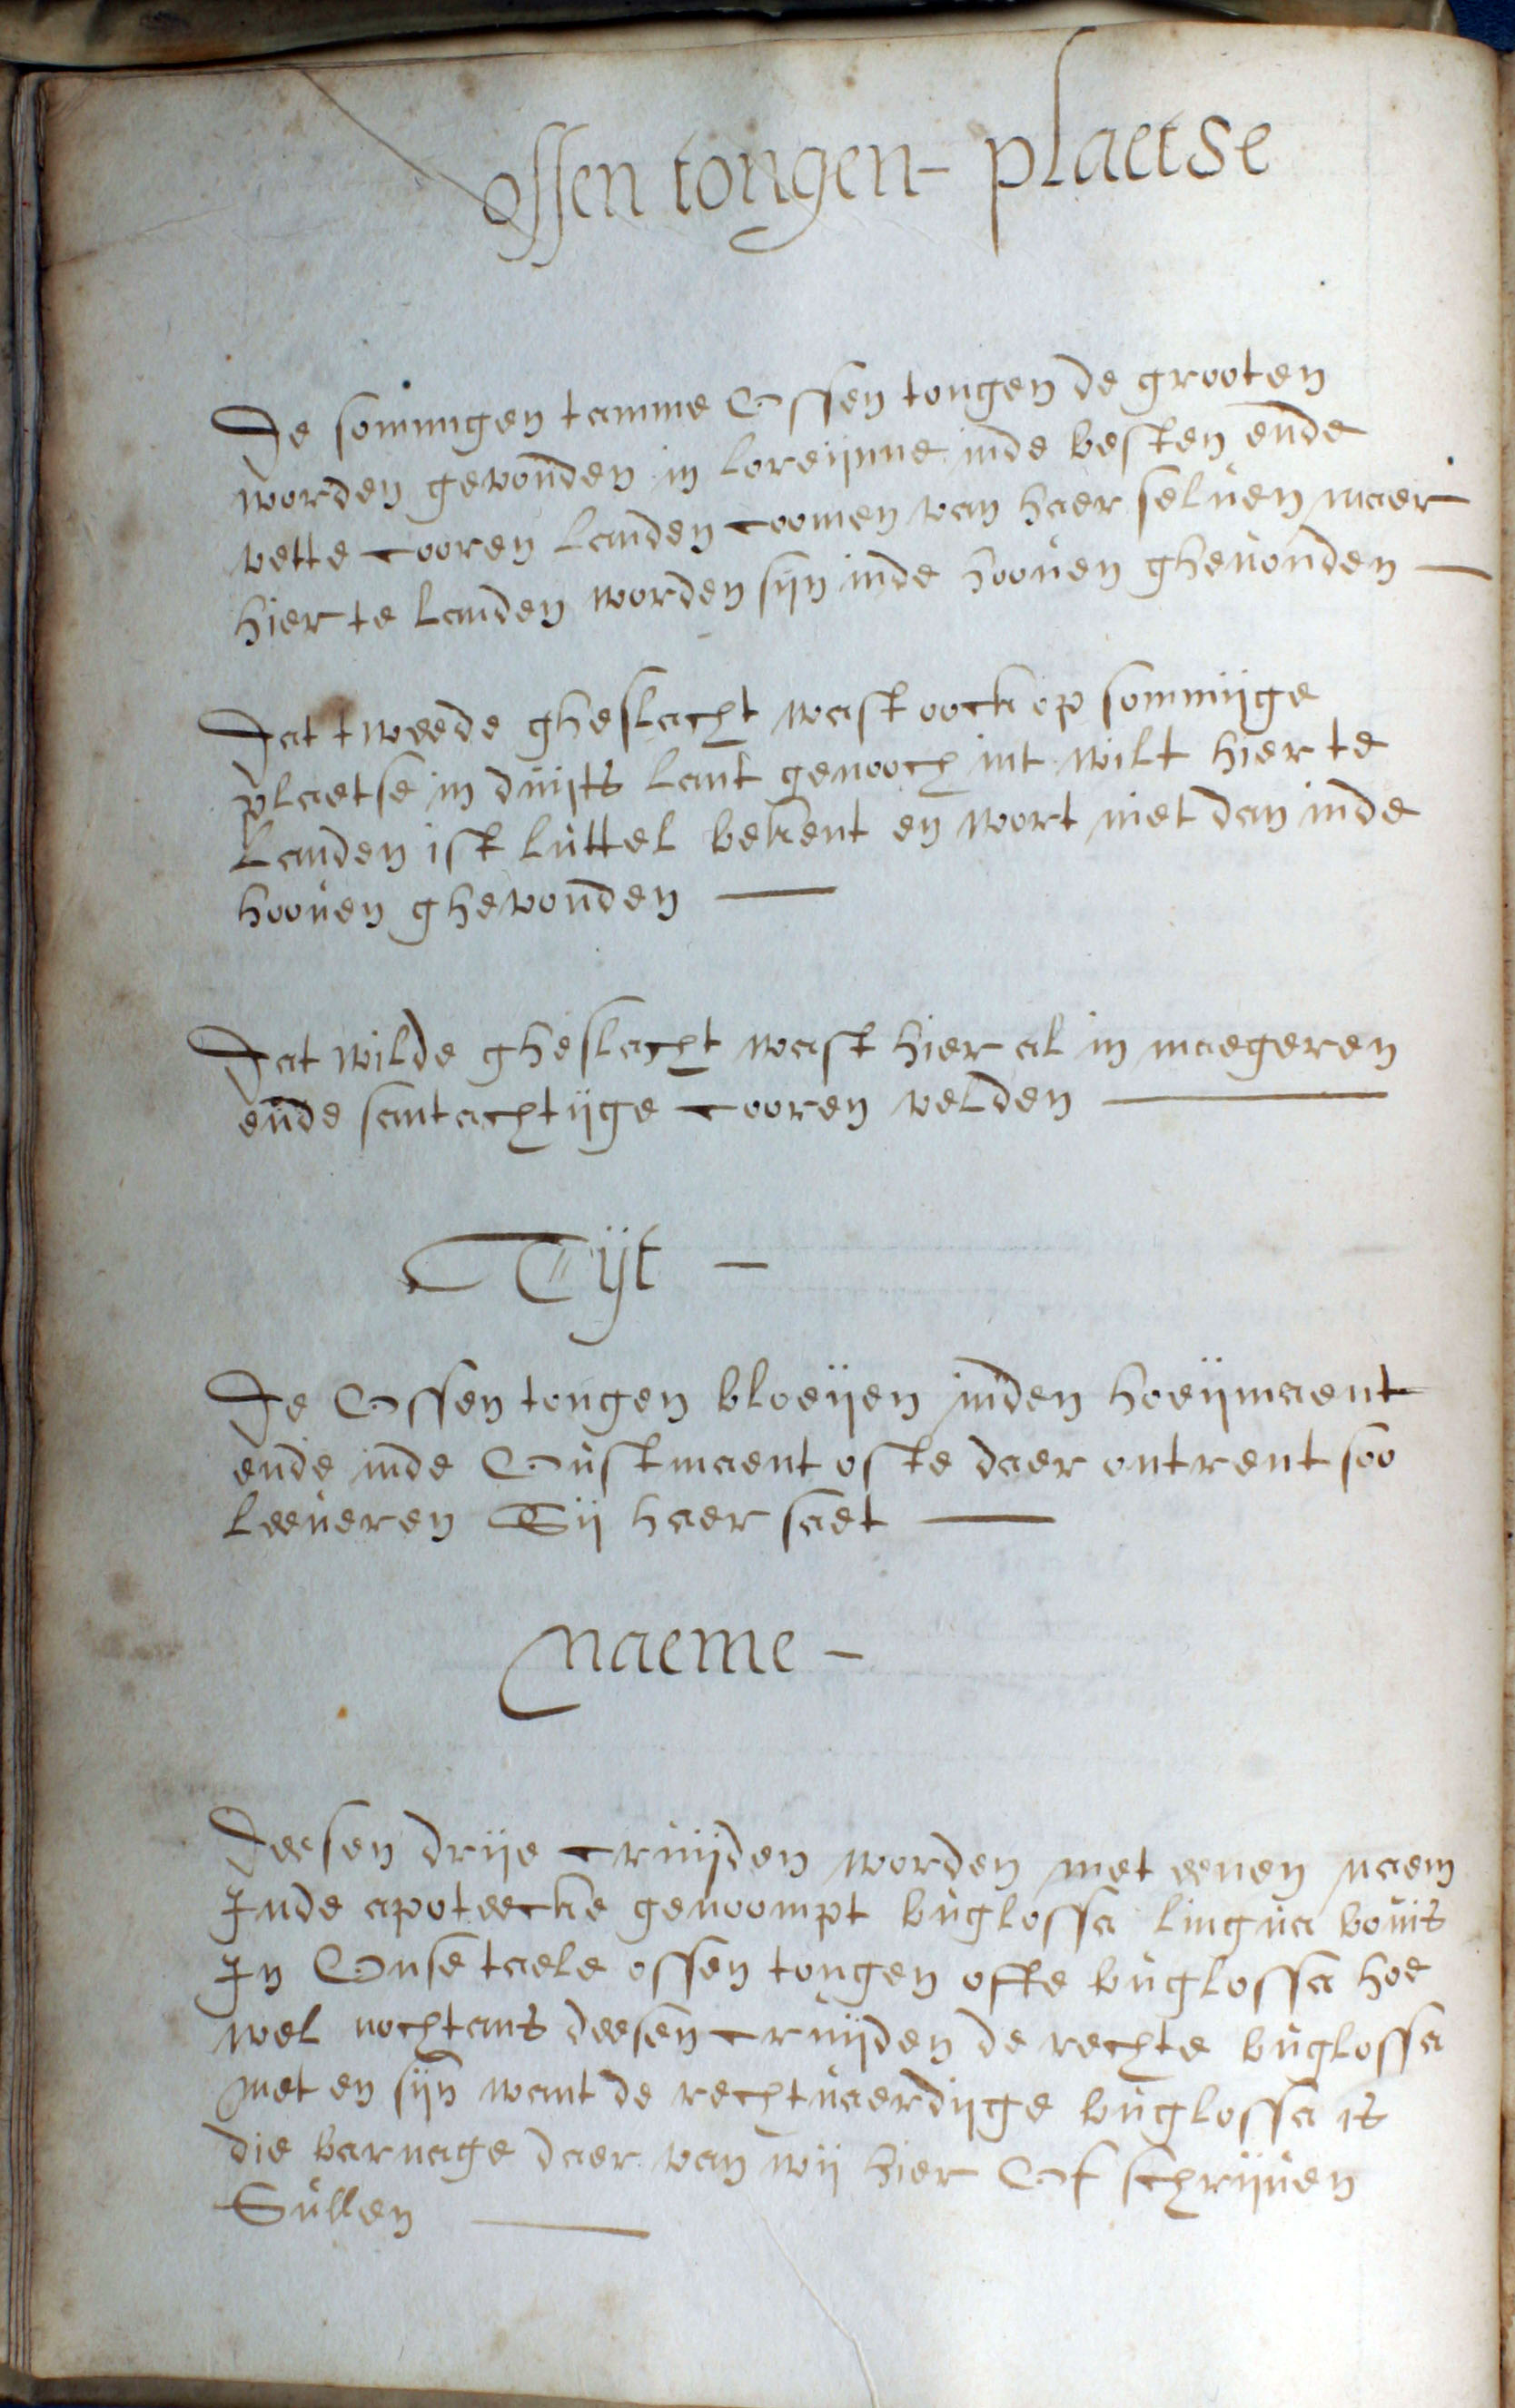 ossen tongen – plaetse
De sommigen tamme Ossen tongen de grooten
worden gevonden in loreijnne inde besten ende
vette cooren landen coomen van haer selven maer
hier te landen worden sijn inde hooven ghevonden —
Dat tweede gheslacht wast oock op sommijge
plaetse in duijts lant genooch int wilt hier te
Landen ist luttel bekent en wort niet dan inde
hooven ghevonden —
Dat wilde gheslacht wast hier al in maegeren
ende santachtijge cooren velden —
Tijt –
De Ossen tongen bloeijen inden hoeijmaent
ende inde Oustmaent ofte daer ontrent soo
leeveren Sij haer saet —
naeme –
Deesen drije cruijden worden met eenen naem
Inde apoteecke genoompt buglossa lingua bovis
In Onse taele ossen tongen offte buglossa hoe
wel nochtans deesen cruijden de rechte buglossa
niet en sijn want de rechtvaerdijge buglossa is
die barnage daer van wij hier Of schrijven
Sullen —